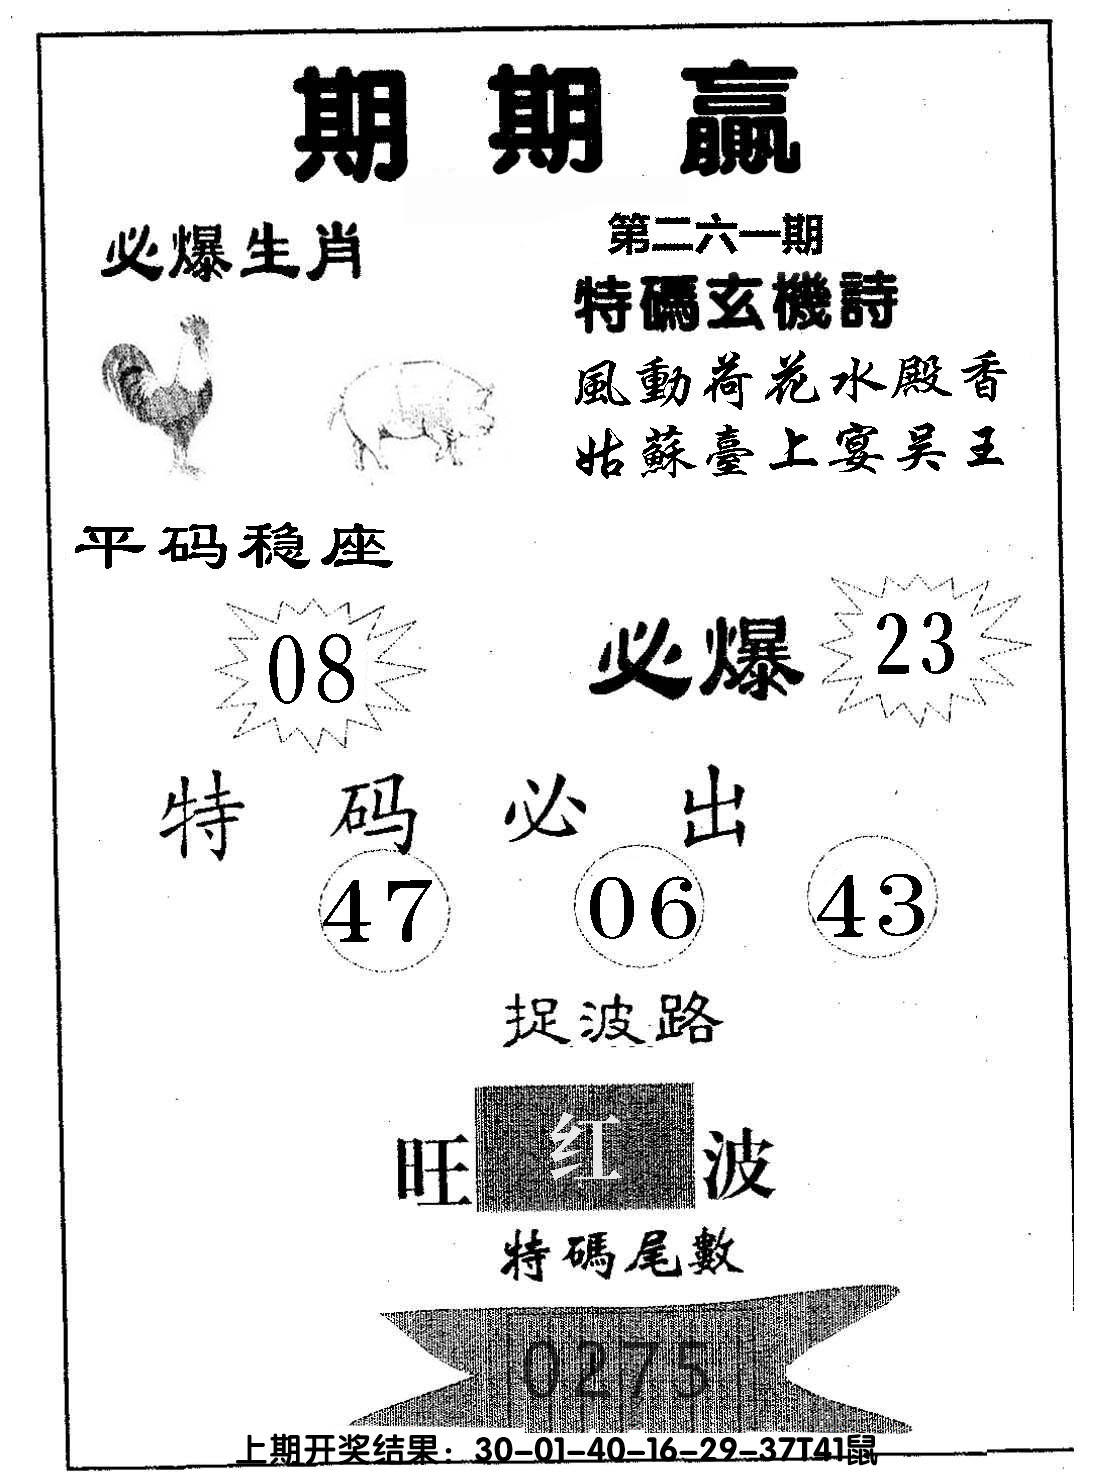 期期赢
必爆生肖
第二六一期
特碼玄機詩
風動荷花水殿香
姑蘇臺上宴吴王
平码稳座
08
必爆
23
特码必出
47 06 43
捉波路
旺红波
特碼尾數
0275
上期开奖结果：30-01-40-16-29-37T41鼠